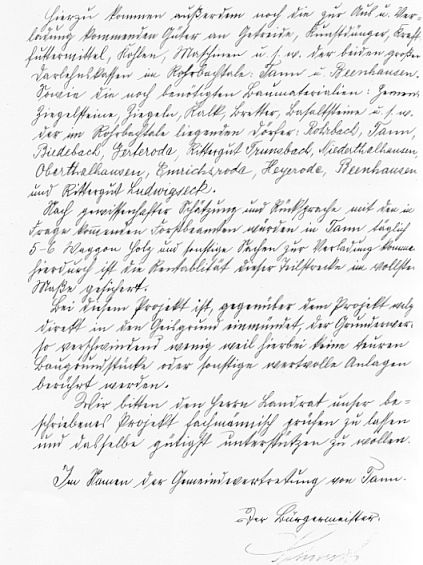 Hierzu kommen außerdem noch die zur Aus u. Ver-
ladung kommenden Güter an Getreide, Kunstdünger, Kraft-
futtermittel, Kohlen, Maschinen u.s.w. der beiden großen
Darlehnskassen im Rohrbachtale: Tann u. Beenhausen.
Sowie die noch benötigten Baumaterialien: Zement,
Ziegelsteine, Ziegeln, Kalk, Bretter, Basaltsteine u.s.w.
der im Rohrbachtale liegenden Dörfer: Rohrbach, Tann,
Biedebach, Gerterode, Rittergut Trunsbach, Niederthalhausen,
Oberthalhausen, Ersrode, Heyerode, Beenhausen
und Rittergut Ludwigseck.
Nach gewissenhafter Schätzung und Rücksprache mit den in
Frage kommenden Forstbeamten würden in Tann täglich
5-6 Waggon Holz und sonstige Sachen zur Verladung kommen
hierdurch ist die Rentabilität dieser Teilstrecke im vollsten
Maße gesichert.
Bei diesem Projekt ist, gegenüber dem Projekt welches
direkt in den Geisgrund einmündet, der Grunderwerb
so verschwindend wenig weil hierbei keine teuren
Baugrundstücke oder sonstige wertvolle Anlagen
berührt werden.
Wir bitten den Herrn Landrat unser be-
schriebenes Projekt fachmännisch prüfen zu lassen
und dasselbe gütigst unterstützen zu wollen.
Im Namen der Gemeindevertretung von Tann.
Der Bürgermeister.